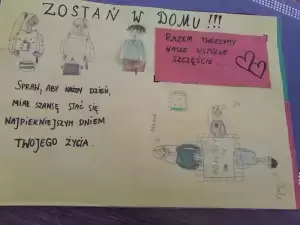 ZOSTAŃ W DOMU!!!
RAZEM TWORZYMY
NASZE WSPÓLNE
SZCZĘŚCIE...
SPRAW, ABY KAŻDY DZIEŃ,
MIAŁ SZANSĘ STAĆ SIĘ
NAJPIĘKNIEJSZYM DNIEM
TWOJEGO ŻYCIA.